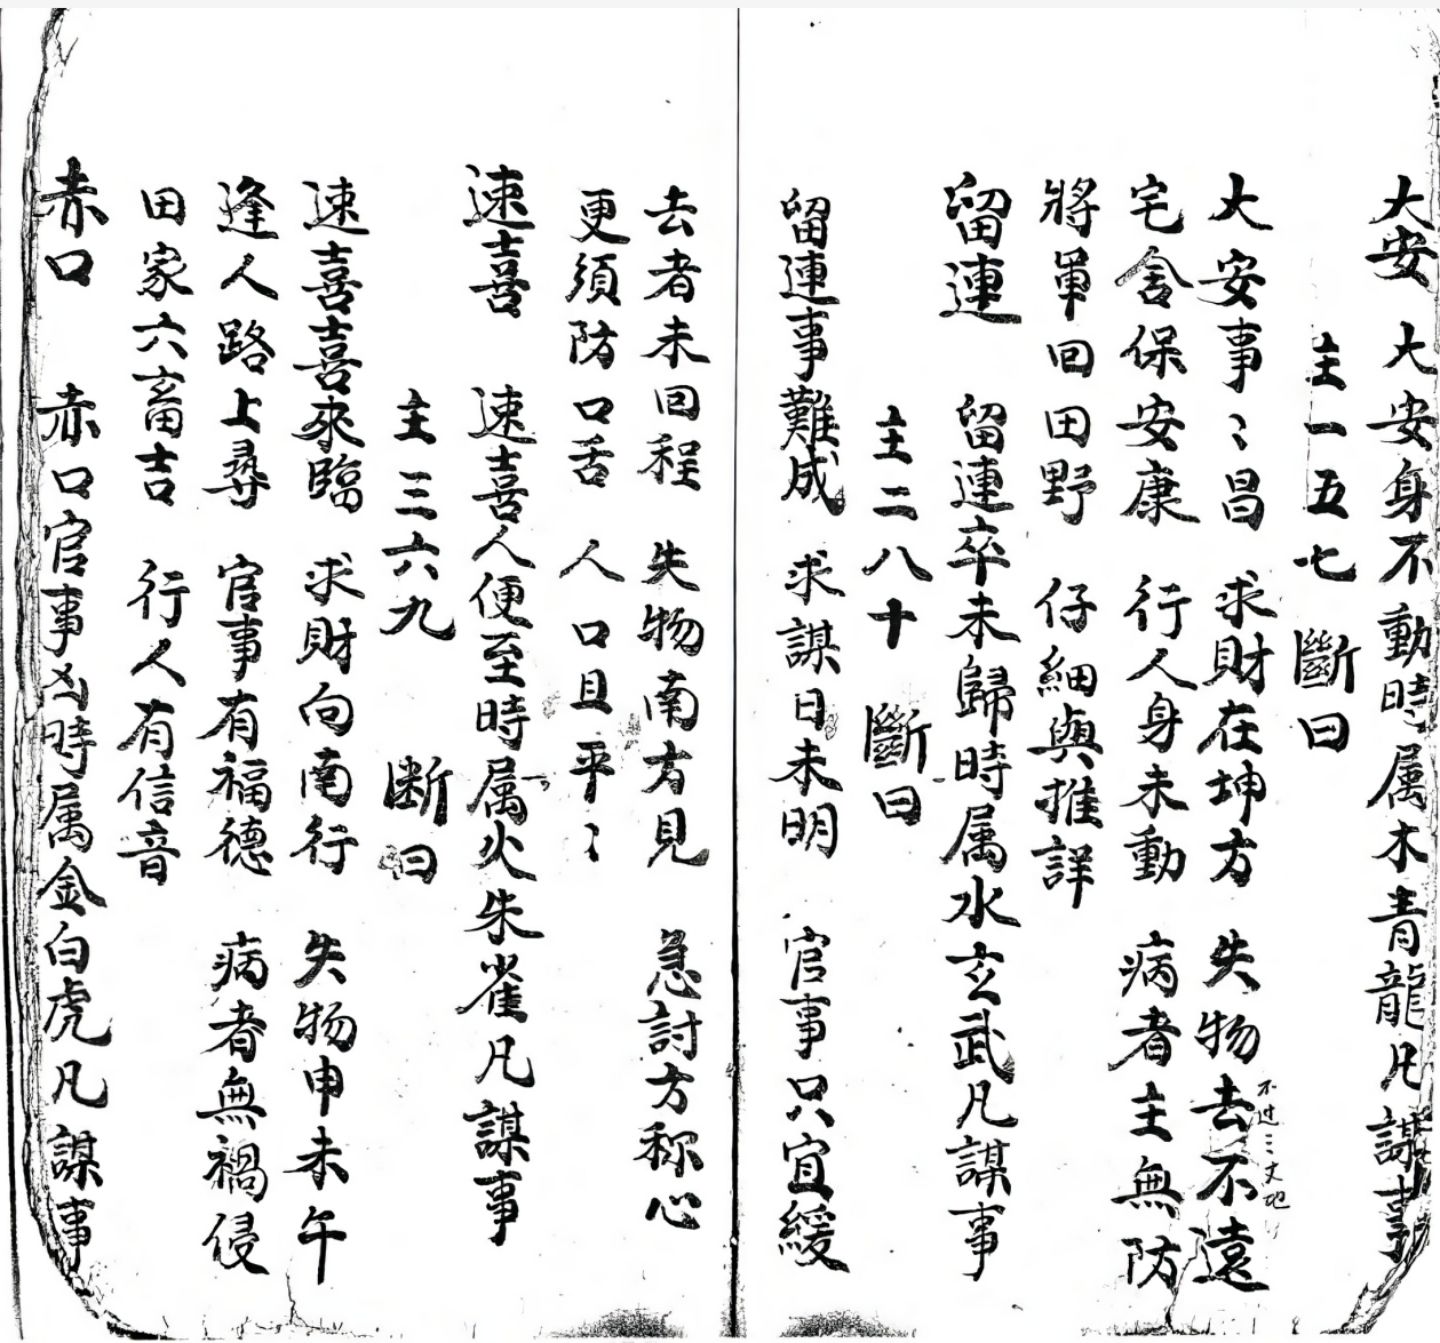 大安　大安身不動時属木青龍凡謀事
主一五七　斷曰
大安事〻昌　求財在坤方　失物去不遠
不过三丈地
宅舍保安康　行人身未動　病者主無防
將軍回田野　仔細與推詳
留連　留連卒未歸時属水玄武凡謀事
主二八十　斷曰
留連事難成　求謀日未明　官事只宜緩
去者未回程　失物南方見　急討方称心
更須防口舌　人口且平〻
速喜　速喜人便至時属火朱雀凡謀事
主三六九　断曰
速喜喜來臨　求財向南行　失物申未午
逢人路上尋　官事有福德　病者無禍侵
田家六畜吉　行人有信音
赤口　赤口官事凶時属金白虎凡謀事